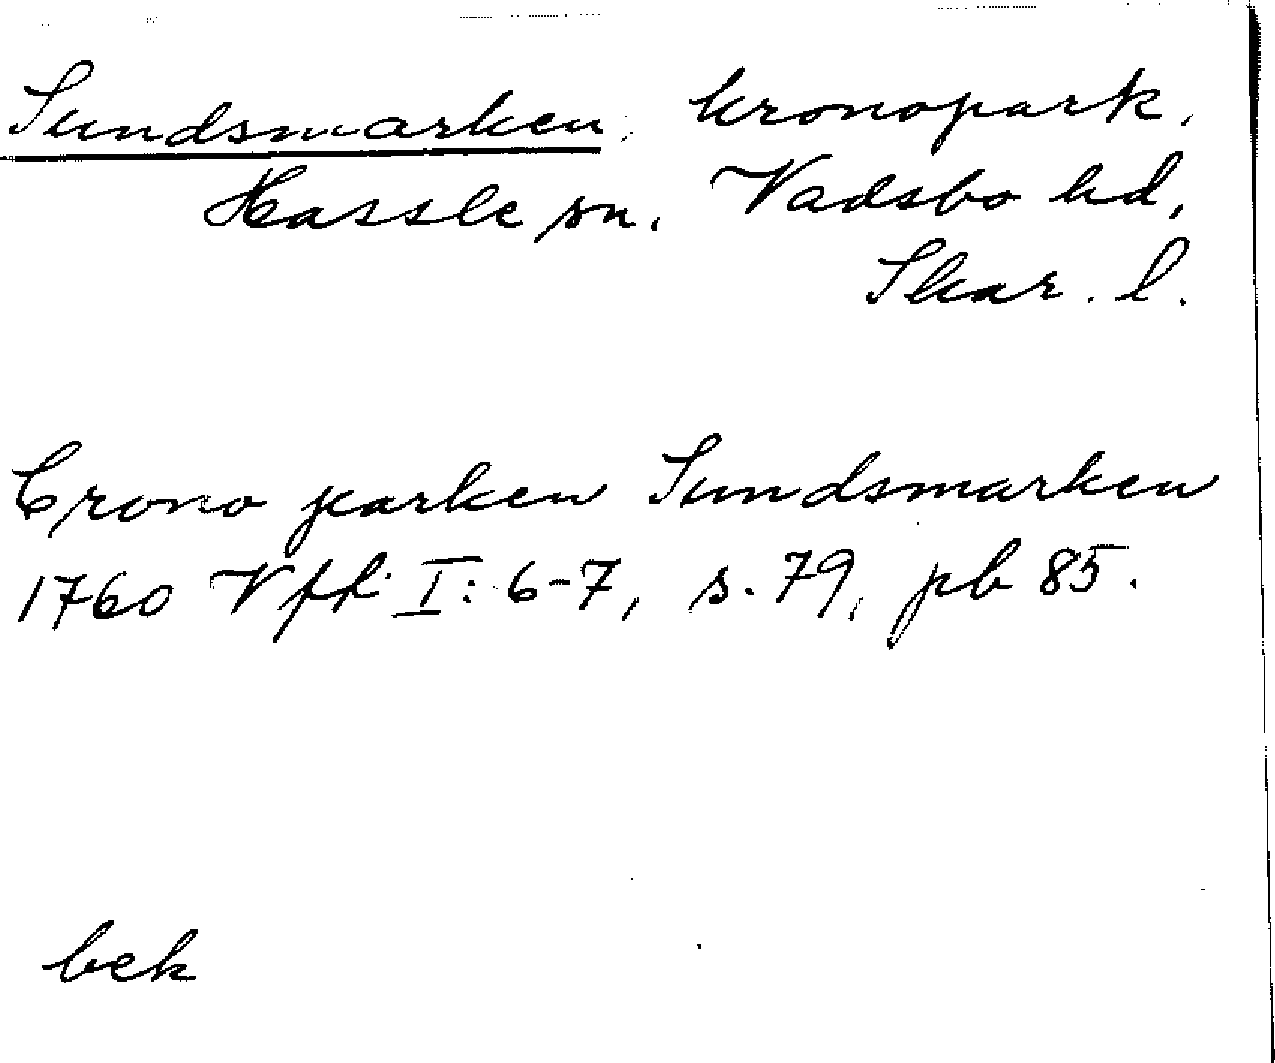 Sundsmarken, kronopark,
Hassle sn, Vadsbo hd,
Skar. l.
Crono parken Sundsmarken
1760 Vfk I: 6-7, s. 79, pb 85.
bek